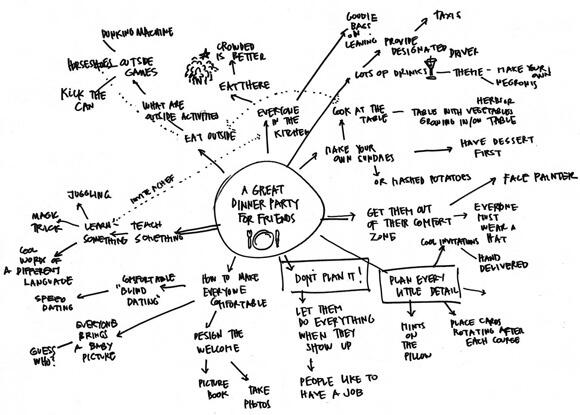 DUNKING MACHINE
HORSESHOES
OUTSIDE
GAMES
KICK THE
CAN
WHAT ARE
OUTSIDE ACTIVITIES
EAT OUTSIDE
CROWDED
IS BETTER
EAT THERE
EVERYONE
IN THE
KITCHEN
GOODIE
BAGS
ON
LEAVING
PROVIDE
DESIGNATED DRIVER
TAXIS
LOTS OF DRINKS
THEME - MAKE YOUR
OWN
NEGRONIS
LOOK AT THE
TABLE
TABLE WITH VEGETABLES
GROWING IN/ON TABLE
MAKE YOUR
OWN SUNDAES
HAVE DESSERT
FIRST
OR MASHED POTATOES
INVITE A CHEF
A GREAT
DINNER PARTY
FOR FRIENDS
JUGGLING
MAGIC
TRICK
LEARN
SOMETHING
TEACH
SOMETHING
COOL
WORK OF
A DIFFERENT
LANGUAGE
GET THEM OUT
OF THEIR COMFORT
ZONE
FACE PAINTER
EVERYONE
MUST
WEAR A
HAT
HOW TO MAKE
EVERYONE
COMFORTABLE
COMFORTABLE
"BLIND
DATING"
SPEED
DATING
EVERYONE
BRINGS
A BABY
PICTURE
GUESS
WHO?
DESIGN THE
WELCOME
PICTURE
BOOK
TAKE
PHOTOS
DON'T PLAN IT!
LET THEM
DO EVERYTHING
WHEN THEY
SHOW UP
PEOPLE LIKE TO
HAVE A JOB
PLAN EVERY
LITTLE DETAIL
COOL INVITATIONS
HAND
DELIVERED
MINTS
ON
THE
PILLOW
PLACE CARDS
ROTATING AFTER
EACH COURSE